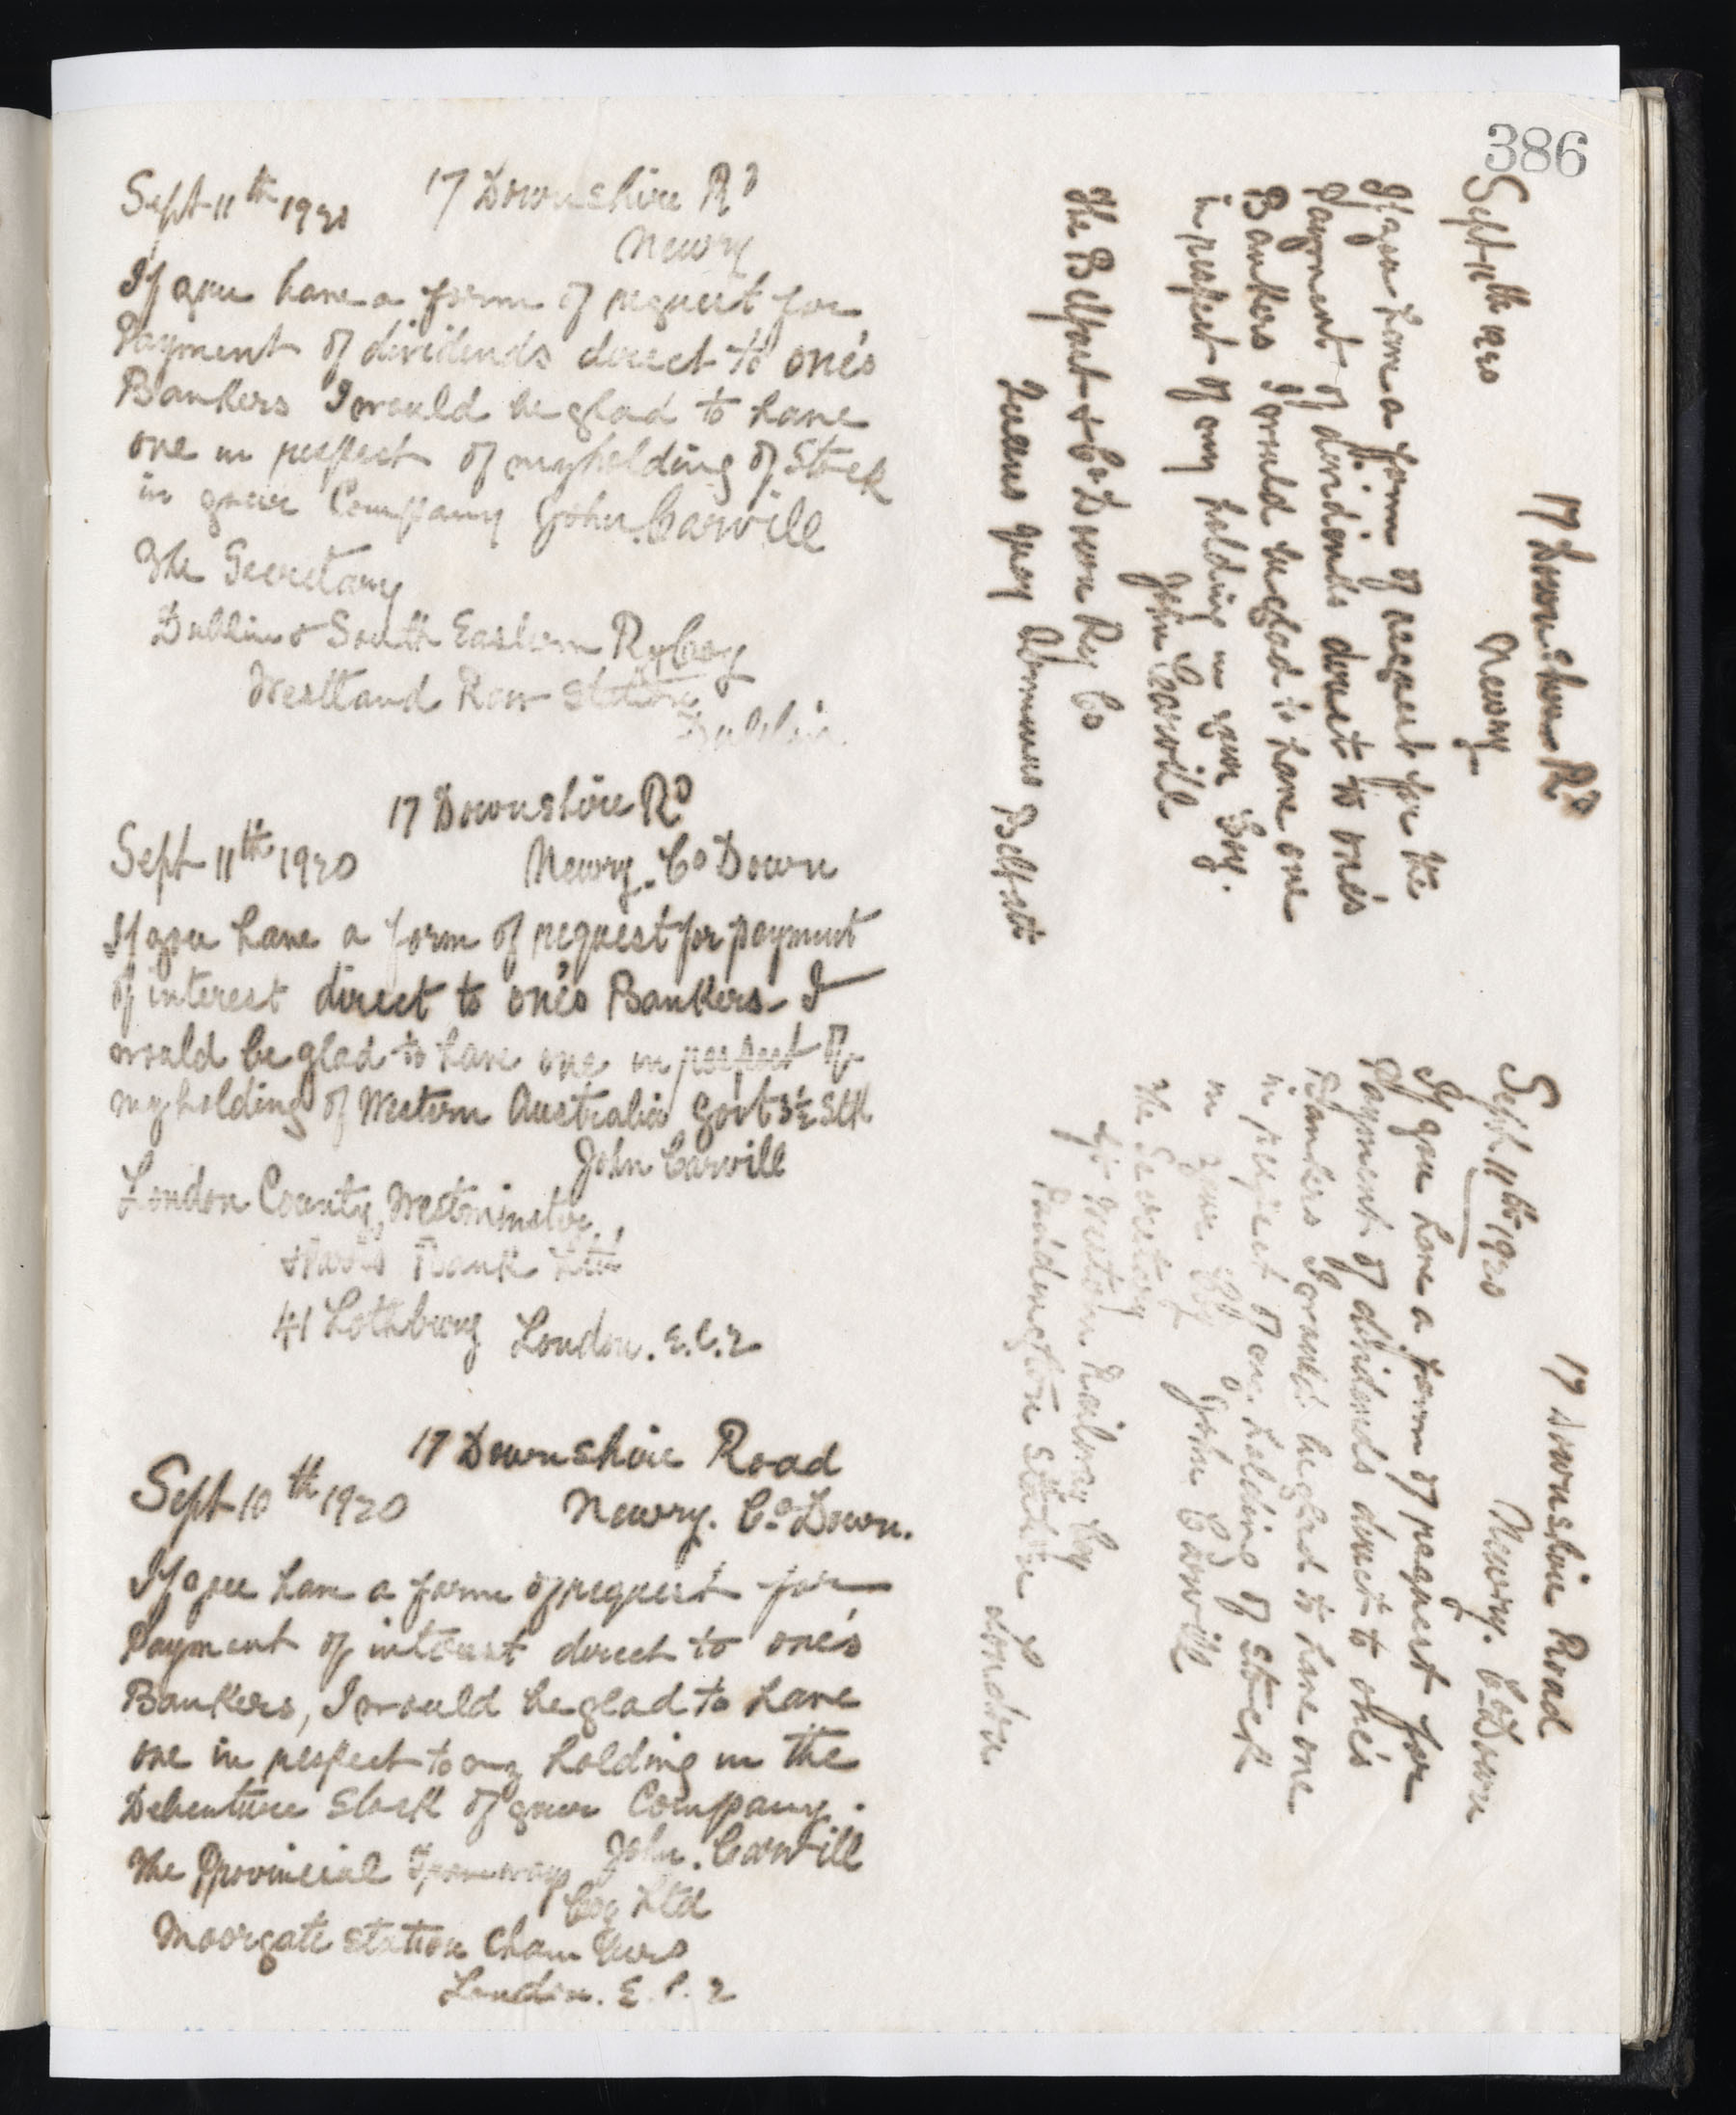 386
17 Downshire Rd
Sept 11th 1920
Newry
If you have a form of request for
Payment of dividends direct to one's
Bankers I would be glad to have
one in respect of my holding of Stock
in your Company John Carvill
The Secretary
Dublin & South Eastern Ry Coy
Westland Row Station
Dublin.
17 Downshire Rd
Sept 11th 1920 Newry. Co Down
If you have a form of request for payment
of interest direct to one's Bankers I
would be glad to have one in respect of
my holding of Western Australia Govt 3½ Stk
John Carvill
London County, Westminster,
& Parrs Bank Ltd
41 Lothbury London. E.C.2
17 Downshire Road
Sept 10th 1920 Newry. Co Down.
If you have a form of request for
Payment of interest direct to one's
Bankers, I would be glad to have
one in respect to my holding in the
Debenture Stock of your Company.
John. Carvill
The Provincial Tramways
Coy Ltd
Moorgate Station Chambers
London. E.C.2
17 Downshire Rd
Sept 11th 1920 Newry
If you have a form of request for the
Payment of dividends direct to one's
Bankers I would be glad to have one
in respect of my holding in your Coy.
John Carvill
The Belfast & Co Down Ry Co
Queens Quay Terminus Belfast
17 Downshire Road
Sept 11th 1920 Newry. Co Down
If you have a form of request for
Payment of dividends direct to one's
Bankers I would be glad to have one
in respect of my holding of stock
in your Coy John Carvill
The Secretary
Gt Western Railway Coy
Paddington Station London.